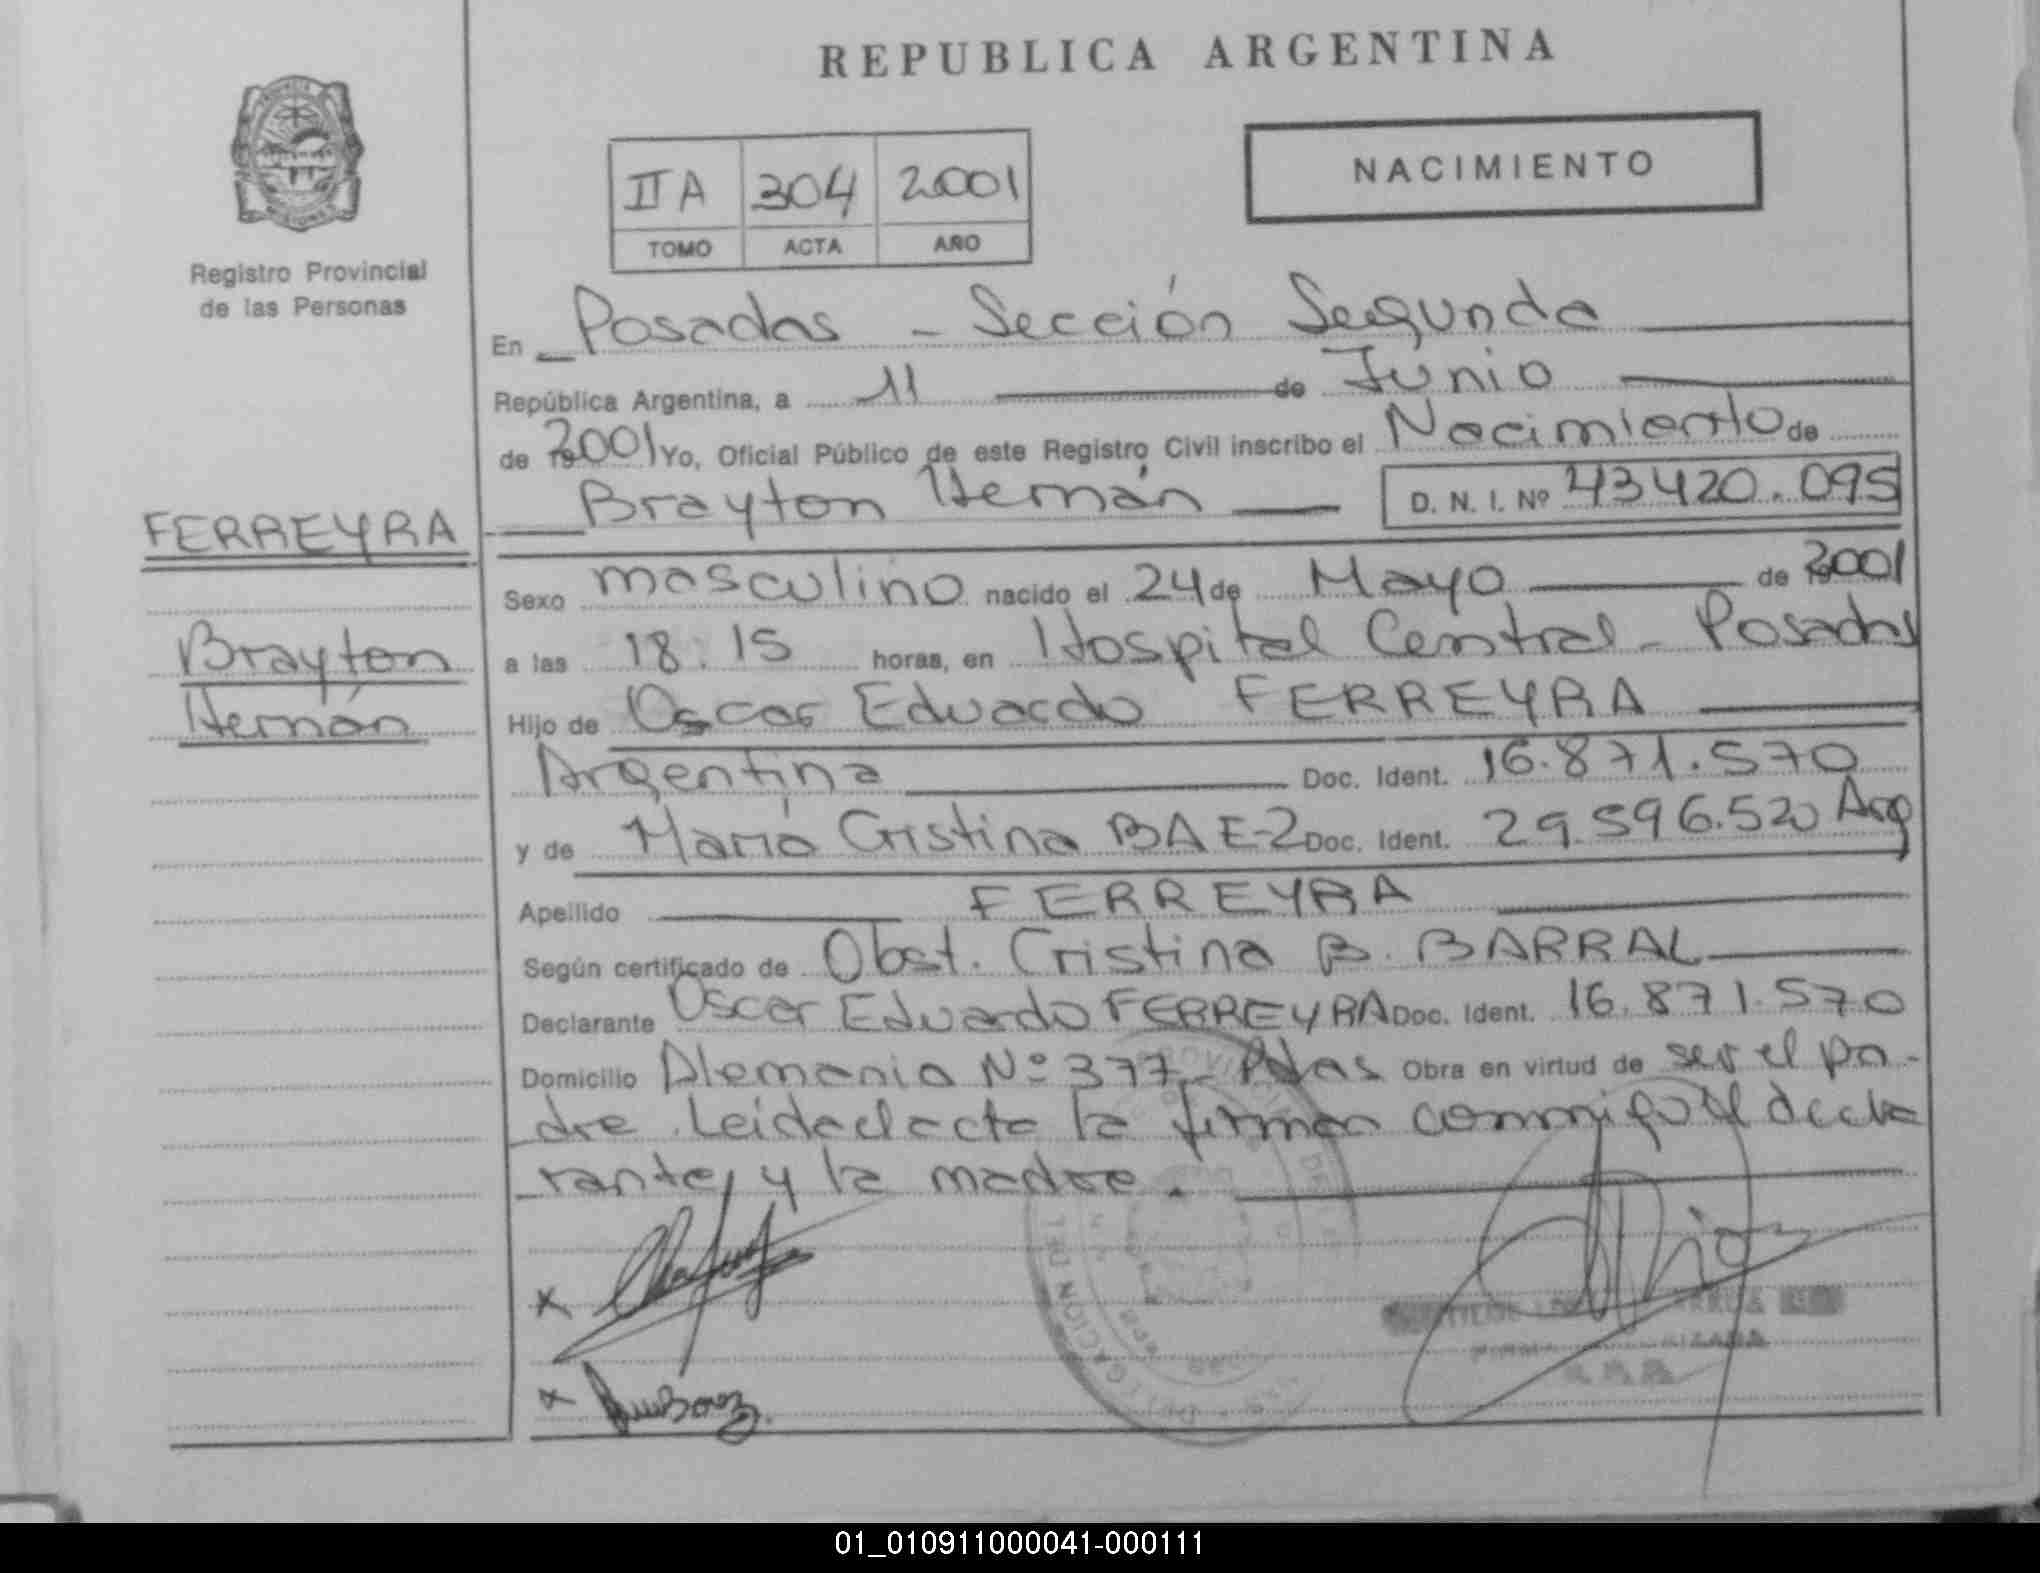 REPUBLICA ARGENTINA
NACIMIENTO
IIA 304 2001
TOMO ACTA AÑO
Registro Provincial
de las Personas
En Posadas - Sección Segunda
República Argentina, a 11 de Junio
de 2001 Yo, Oficial Público de este Registro Civil inscribo el Nacimiento de
Brayton Hernán D. N. I. Nº 43420.095
FERREYRA
Brayton
Hernán
Sexo masculino nacido el 24 de Mayo de 2001
a las 18:15 horas, en Hospital Central - Posadas
Hijo de Oscar Eduardo FERREYRA
Argentina Doc. Ident. 16.871.570
y de María Cristina BAEZ Doc. Ident. 29.596.520 Arg
Apellido FERREYRA
Según certificado de Obst. Cristina B. BARRAL
Declarante Oscar Eduardo FERREYRA Doc. Ident. 16.871.570
Domicilio Alemania Nº 377 - Pdas Obra en virtud de ser el pa-
dre. Leida el acta la firman conmigo el decla
rante, y la madre.
x
x
01_010911000041-000111